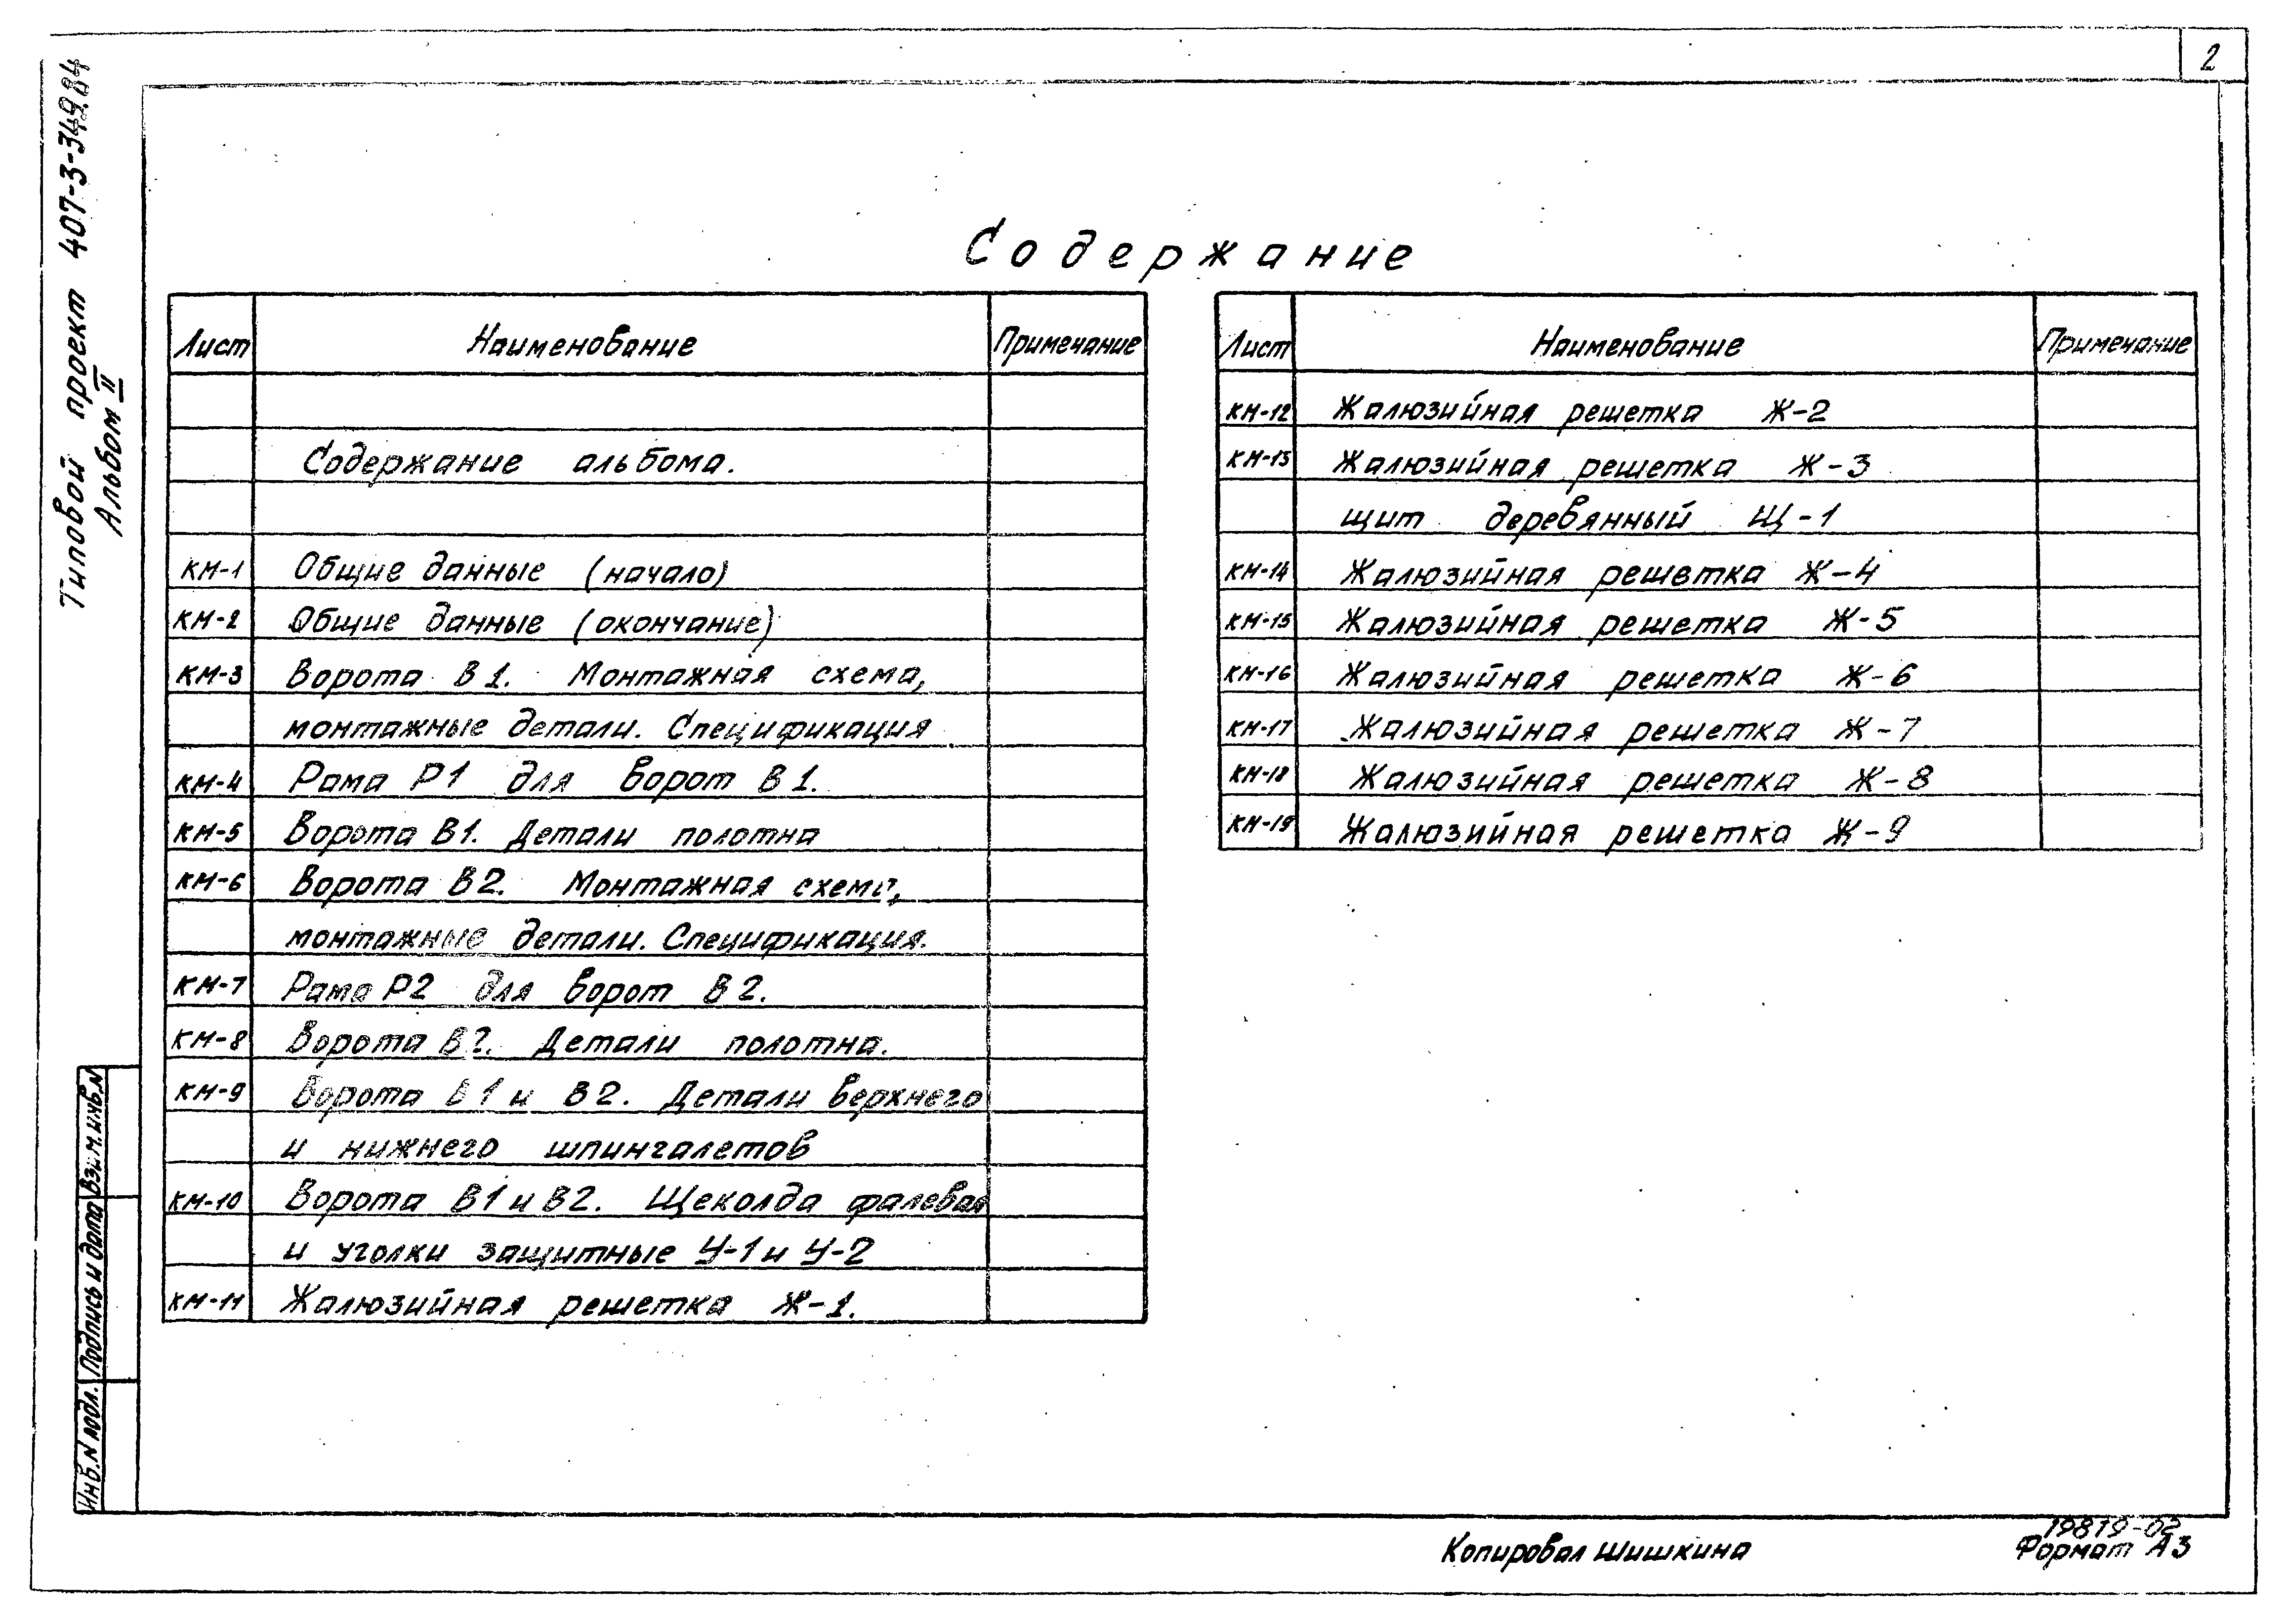 2
Типовой проект 407-3-349.84
Альбом II
Содержание
Лист Наименование Примечание
Содержание альбома.
КМ-1 Общие данные (начало)
КМ-2 Общие данные (окончание)
КМ-3 Ворота В1. Монтажная схема,
монтажные детали. Спецификация
КМ-4 Рама Р1 для ворот В1.
КМ-5 Ворота В1. Детали полотна
КМ-6 Ворота В2. Монтажная схема,
монтажные детали. Спецификация.
КМ-7 Рама Р2 для ворот В2.
КМ-8 Ворота В2. Детали полотна.
КМ-9 Ворота В1 и В2. Детали верхнего
и нижнего шпингалетов
КМ-10 Ворота В1 и В2. Щеколда фалевая
и уголки защитные У-1 и У-2
КМ-11 Жалюзийная решетка Ж-1.
Лист Наименование Примечание
КМ-12 Жалюзийная решетка Ж-2
КМ-13 Жалюзийная решетка Ж-3
щит деревянный Щ-1
КМ-14 Жалюзийная решетка Ж-4
КМ-15 Жалюзийная решетка Ж-5
КМ-16 Жалюзийная решетка Ж-6
КМ-17 Жалюзийная решетка Ж-7
КМ-18 Жалюзийная решетка Ж-8
КМ-19 Жалюзийная решетка Ж-9
Инв.N подл. Подпись и дата Взам.инв.N
Копировал Шишкина
19819-02
Формат А3